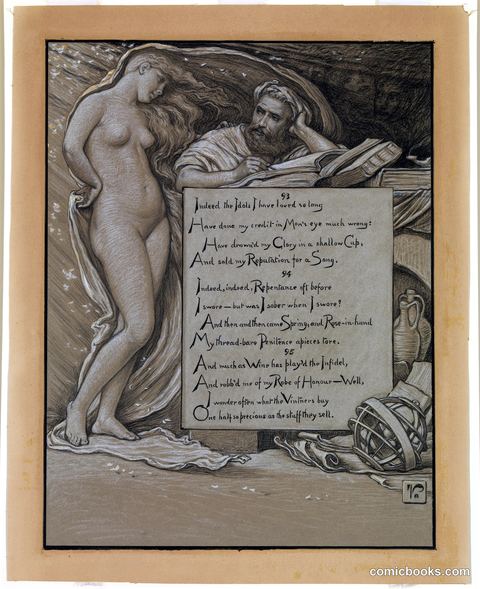 93
Indeed the Idols I have loved so long
Have done my credit in Men's eye much wrong:
Have drown'd my Glory in a shallow Cup,
And sold my Reputation for a Song.
94
Indeed, indeed, Repentance oft before
I swore — but was I sober when I swore?
And then and then came Spring, and Rose-in-hand
My thread-bare Penitence apieces tore.
95
And much as Wine has play'd the Infidel,
And robb'd me of my Robe of Honour — Well,
I wonder often what the Vintners buy
One half so precious as the stuff they sell.
V
comicbooks.com